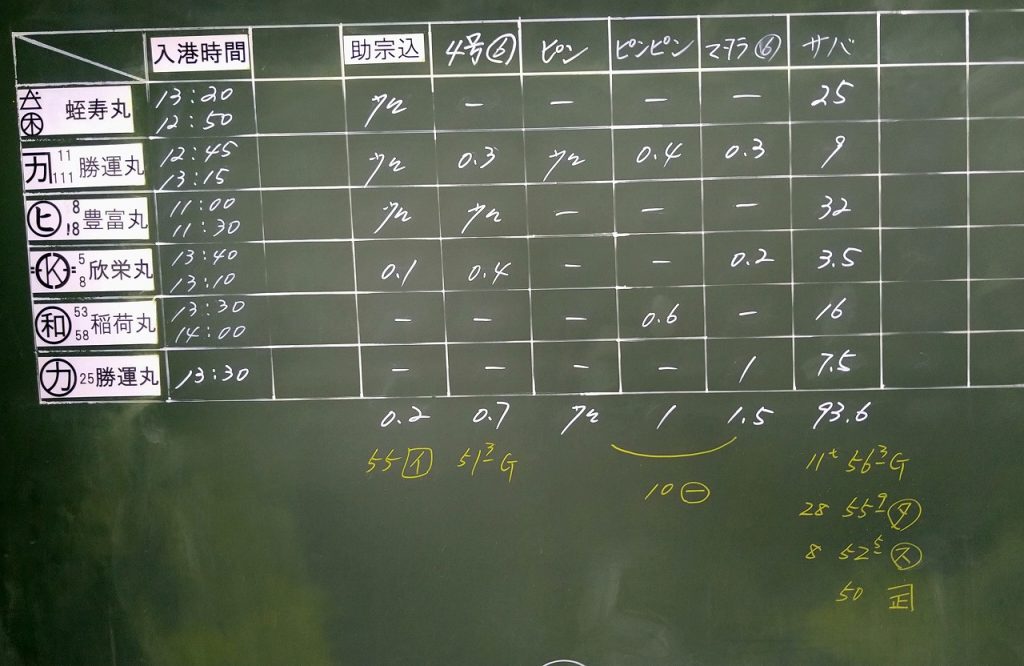 入港時間 助宗込 4号⑥ ピン ピンピン マダラ⑥ サバ
木 蛭寿丸 13:20 12:50 少々 - - - - 25
カ 11 111 勝運丸 12:45 13:15 少々 0.3 少々 0.4 0.3 9
ヒ 8 18 豊富丸 11:00 11:30 少々 少々 - - - 32
K 5 8 欣栄丸 13:40 13:10 0.1 0.4 - - 0.2 3.5
和 53 58 稲荷丸 13:30 14:00 - - - 0.6 - 16
カ 25 勝運丸 13:30 - - - - 1 7.5
0.2 0.7 少々 1 1.5 93.6
55 イ 51 3 G 11t 56 3 G
10 ㊀
28 55 9 タ
8 52 5 ス
50 正